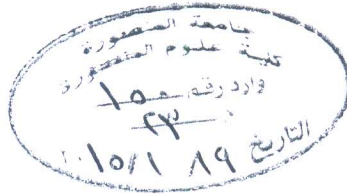 جامعة المنصورة
كلية علوم المنصورة
وارد رقم ١٥٠
٢٣
التاريخ ١٩